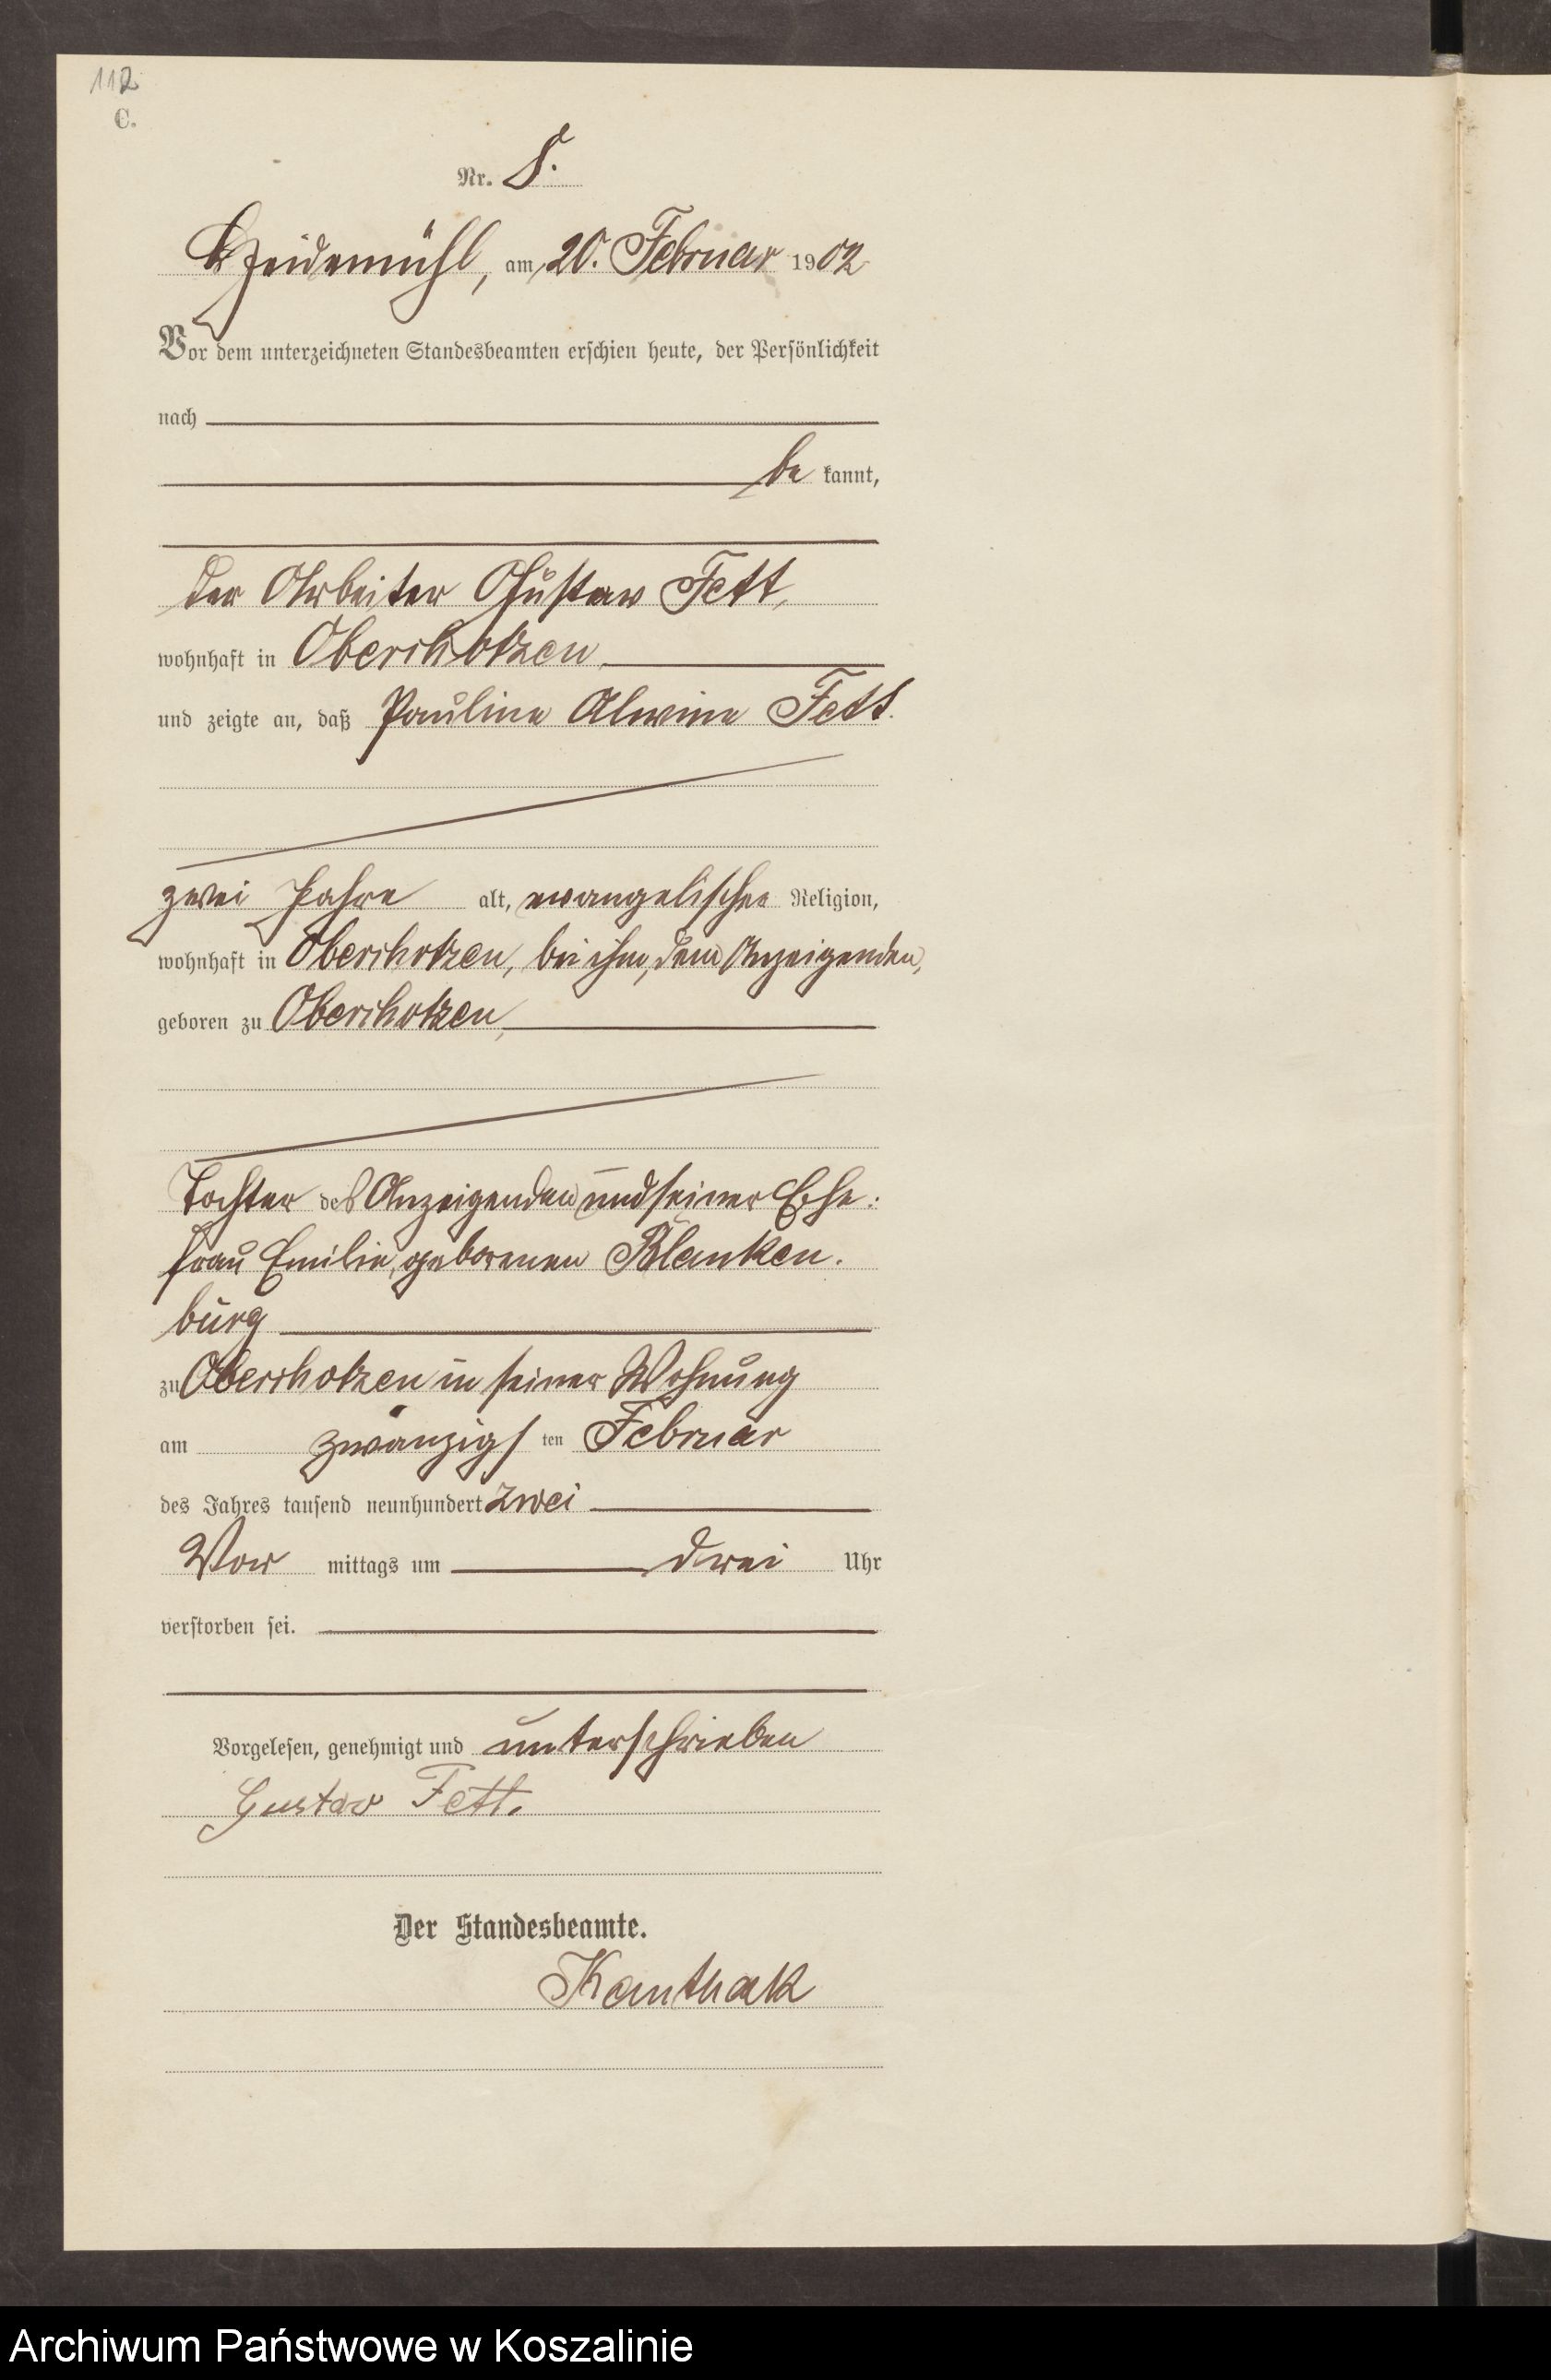 112
C.
Nr. 8.
Heidemühl, am 20. Februar 1902
Vor dem unterzeichneten Standesbeamten erschien heute, der Persönlichkeit
nach
be kannt,
der Arbeiter Gustav Fett,
wohnhaft in Oberchotzen,
und zeigte an, daß Pauline Alwine Fett.
zwei Jahre alt, evangelischer Religion,
wohnhaft in Oberchotzen, bei ihm, dem Anzeigenden,
geboren zu Oberchotzen,
Tochter des Anzeigenden und seiner Ehe:
frau Emilie, geborenen Blanken.
burg
zu Oberchotzen in seiner Wohnung
am zwanzigsten Februar
des Jahres tausend neunhundert zwei
Vor mittags um drei Uhr
verstorben sei.
Vorgelesen, genehmigt und unterschrieben
Gustav Fett.
Der Standesbeamte.
Kanthak
Archiwum Państwowe w Koszalinie